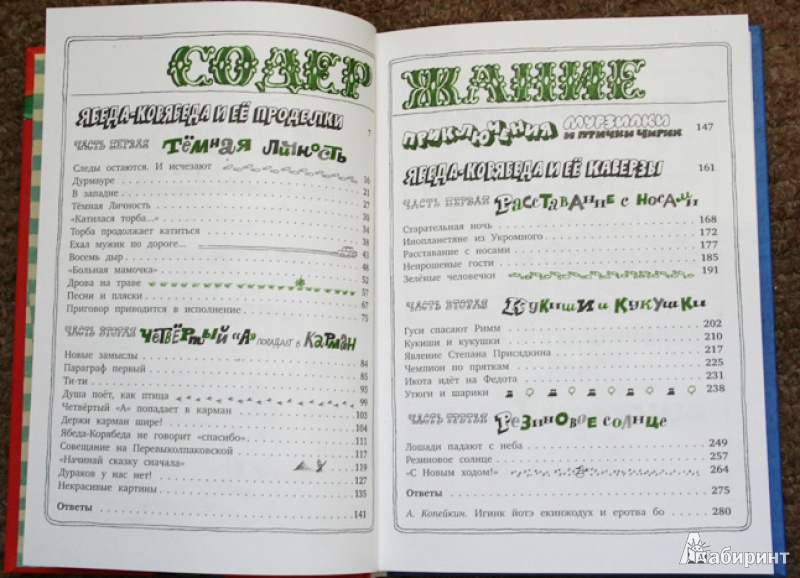 СОДЕР
ЯБЕДА-КОРЯБЕДА И ЕЁ ПРОДЕЛКИ 7
ЧАСТЬ ПЕРВАЯ ТЁМНАЯ ЛИЧНОСТЬ
Следы остаются. И исчезают 16
Дурмвуре 21
В западне 21
Тёмная Личность 27
«Катилася торба...» 30
Торба продолжает катиться 34
Ехал мужик по дороге... 38
Восемь дыр 43
«Больная мамочка» 48
Дрова на траве 52
Песни и пляски 57
Приговор приводится в исполнение 67
75
ЧАСТЬ ВТОРАЯ ЧЕТВЁРТЫЙ «А» ПОПАДАЕТ В КАРМАН
Новые замыслы 84
Параграф первый 85
Ти-ти 93
Душа поёт, как птица 99
Четвёртый «А» попадает в карман 103
Держи карман шире! 104
Ябеда-Корябеда не говорит «спасибо» 111
Совещание на Перевыколпаковской 117
«Начинай сказку сначала» 119
Дураков у нас нет! 127
Некрасивые картины 135
Ответы 141
ЖАНИЕ
ПРИКЛЮЧЕНИЯ МУРЗИЛКИ И ПТИЧКИ ЧИРИК 147
ЯБЕДА-КОРЯБЕДА И ЕЁ КАВЕРЗЫ 161
ЧАСТЬ ПЕРВАЯ РАССТАВАНИЕ С НОСАМИ
Старательная ночь 168
Инопланетяне из Укромного 172
Расставание с носами 177
Непрошеные гости 185
Зелёные человечки 191
ЧАСТЬ ВТОРАЯ КУКИШИ И КУКУШКИ
Гуси спасают Римм 202
Кукиши и кукушки 210
Явление Степана Присядкина 217
Чемпион по пряткам 225
Икота идёт на Федота 231
Утюги и шарики 238
ЧАСТЬ ТРЕТЬЯ РЕЗИНОВОЕ СОЛНЦЕ
Лошади падают с неба 249
Резиновое солнце 257
«С Новым ходом!» 264
Ответы 275
А. Копейкин. Игинк йотэ екинжодух и еротва бо 280
Лабиринт